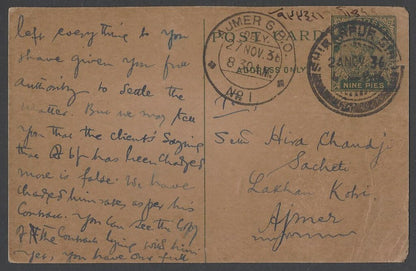 left everything to you
I have given you full
authority to settle the
matter. But we may tell
you that the client's saying
that Rs b/f has been charged
more is false. We have
charged him rates as per his
Contract. You can see the Copy
of the Contract lying with him.
Yes, you have our full
POST CARD
ADDRESS ONLY
NINE PIES
AJMER G.P.O.
DELY.
27 NOV. 36
8.30 A.M.
No 1
SHIKARPUR SIND
24 NOV. 36
To,
Seth Hira Chandji
Sacheti
Lakhan Kotri
Ajmer